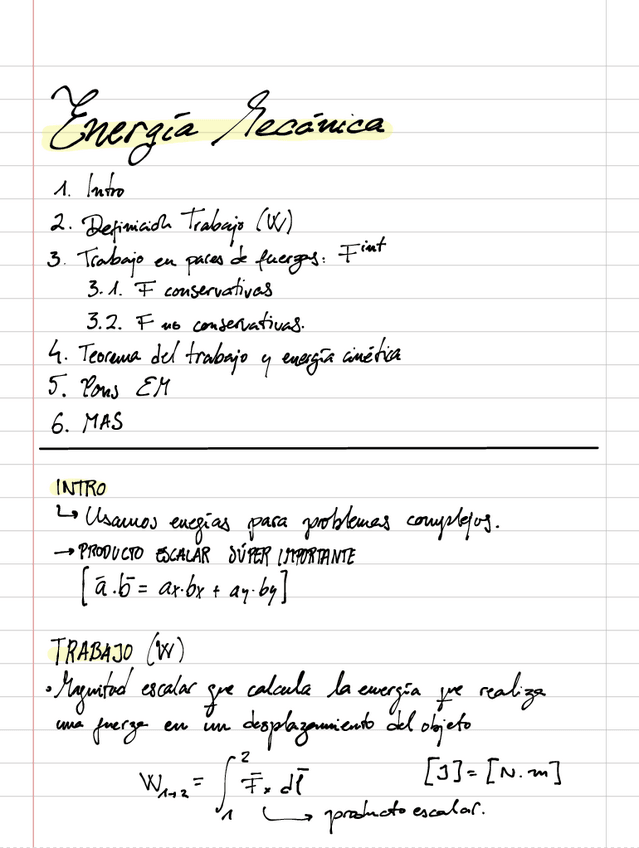 Energía Mecánica
1. Intro
2. Definición Trabajo (W)
3. Trabajo en pares de fuerzas: F^int
3.1. F conservativas
3.2. F no conservativas.
4. Teorema del trabajo y energía cinética
5. Cons EM
6. MAS
INTRO
↳ Usamos enegías para problemas complejos.
→ PRODUCTO ESCALAR SÚPER IMPORTANTE
[ā·b̄ = ax·bx + ay·by]
TRABAJO (W)
• Magnitud escalar que calcula la energía que realiza
una fuerza en un desplazamiento del objeto
W₁→₂ = ∫₁² F̄ × dl̄ [J] = [N·m]
↳ producto escalar.